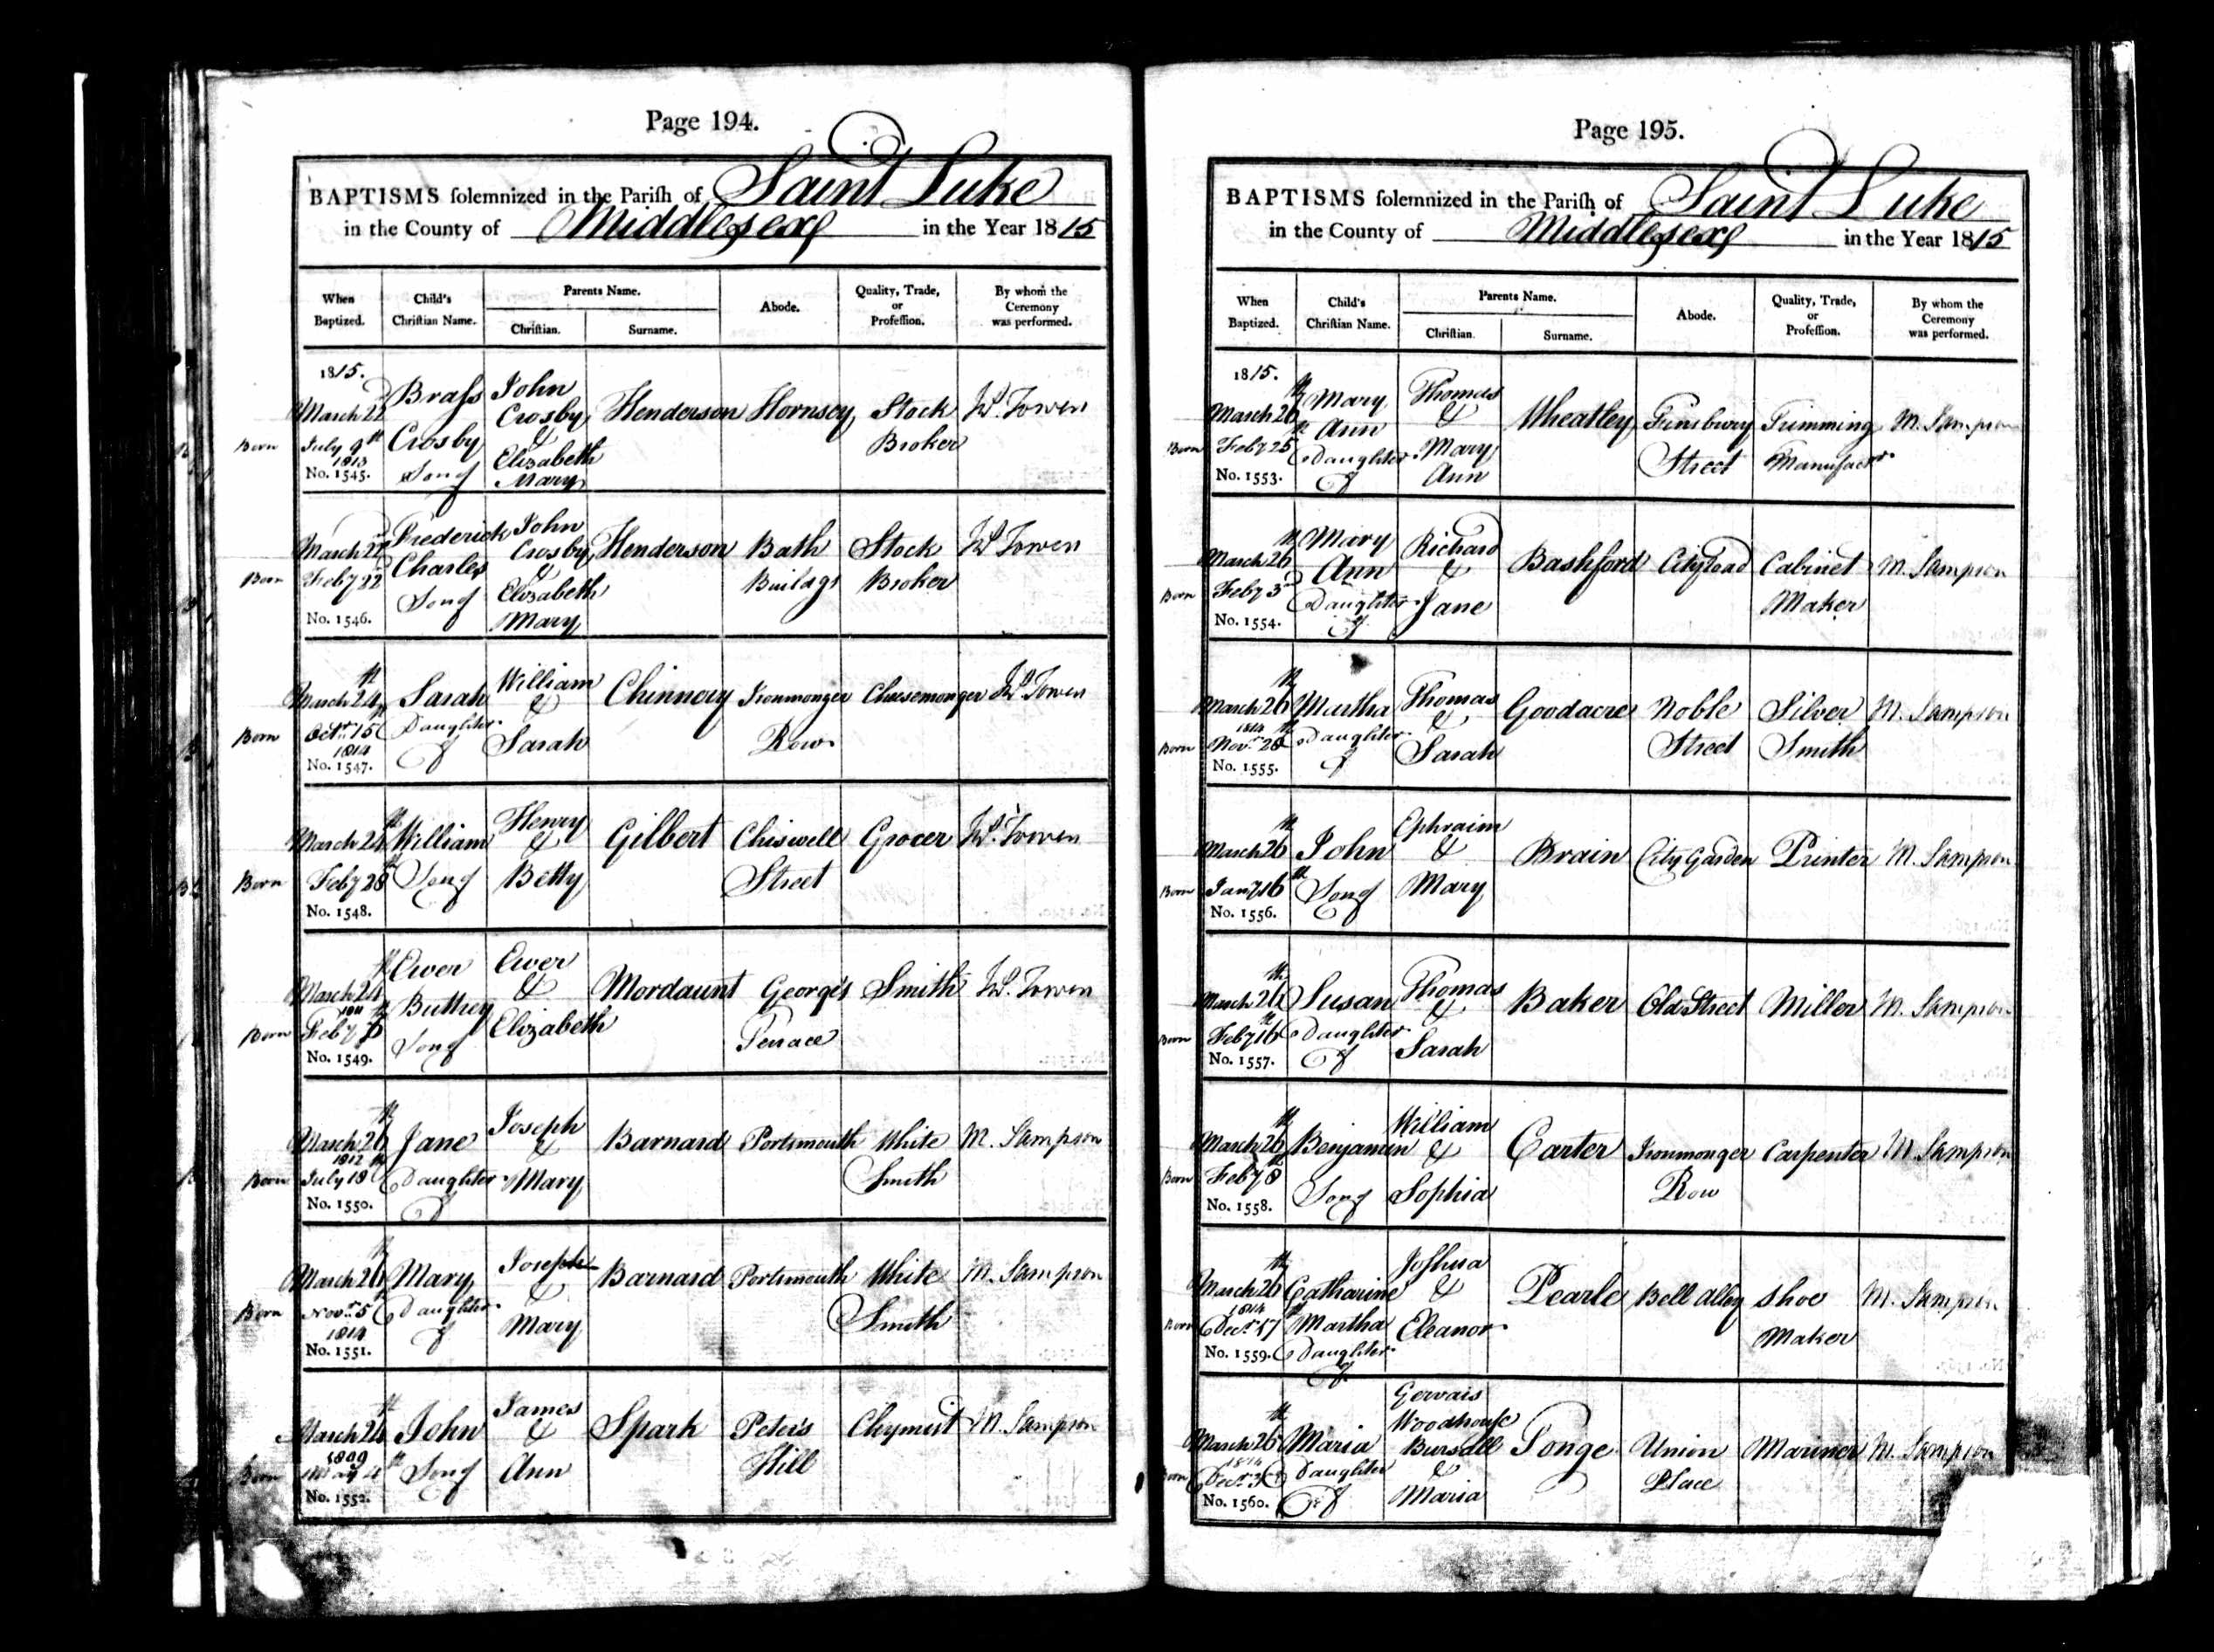 Page 194.
BAPTISMS solemnized in the Parish of Saint Luke
in the County of Middlesex in the Year 1815
When Baptized.
Child's Christian Name.
Parents Name.
Christian.
Surname.
Abode.
Quality, Trade, or Profession.
By whom the Ceremony was performed.
1815.
March 22d
Born July 9th 1813
No. 1545.
Brass Crosby Son of
John Crosby & Elizabeth Mary
Henderson
Hornsey
Stock Broker
Wm. Towen
March 22d
Born Feby 22d
No. 1546.
Frederick Charles Son of
John Crosby & Elizabeth Mary
Henderson
Bath Buildgs
Stock Broker
Wm. Towen
March 24th
Born Octr. 15th 1814
No. 1547.
Sarah Daughter of
William & Sarah
Chinnery
Ironmonger Row
Cheesemonger
Wm. Towen
March 24th
Born Feby 28th
No. 1548.
William Son of
Henry & Betty
Gilbert
Chiswell Street
Grocer
Wm. Towen
March 24th
Born Feby
No. 1549.
Ewer Buttrey Son of
Ewer & Elizabeth
Mordaunt
George's Terrace
Smith
Wm. Towen
March 26th
Born 1812 July 18th
No. 1550.
Jane Daughter of
Joseph & Mary
Barnard
Portsmouth
White Smith
M. Sampson
March 26th
Born Novr. 5th 1814
No. 1551.
Mary Daughter of
Joseph & Mary
Barnard
Portsmouth
White Smith
M. Sampson
March 26th
Born 1809 May 4th
No. 1552.
John Son of
James & Ann
Spark
Peter's Hill
Chymist
M. Sampson
Page 195.
BAPTISMS solemnized in the Parish of Saint Luke
in the County of Middlesex in the Year 1815
When Baptized.
Child's Christian Name.
Parents Name.
Christian.
Surname.
Abode.
Quality, Trade, or Profession.
By whom the Ceremony was performed.
1815.
March 26th
Born Feby 25th
No. 1553.
Mary Ann Daughter of
Thomas & Mary Ann
Wheatley
Finsbury Street
Trimming Manufactr.
M. Sampson
March 26th
Born Feby 3d
No. 1554.
Mary Ann Daughter of
Richard & Jane
Bashford
City Road
Cabinet Maker
M. Sampson
March 26th
Born 1814 Novr. 28th
No. 1555.
Martha Daughter of
Thomas & Sarah
Goodacre
Noble Street
Silver Smith
M. Sampson
March 26th
Born Jany 16th
No. 1556.
John Son of
Ephraim & Mary
Brain
City Garden
Printer
M. Sampson
March 26th
Born Feby 16th
No. 1557.
Susan Daughter of
Thomas & Sarah
Baker
Old Street
Miller
M. Sampson
March 26th
Born Feby 8th
No. 1558.
Benjamin Son of
William & Sophia
Carter
Ironmonger Row
Carpenter
M. Sampson
March 26th
Born 1814 Decr. 17th
No. 1559.
Catharine Martha Daughter of
Joshua & Eleanor
Pearle
Bell alley
Shoe Maker
M. Sampson
March 26th
Born 1814 Decr.
No. 1560.
Maria Daughter of
Gervais Woodhouse Bursall & Maria
Ponge
Union Place
Mariner
M. Sampson